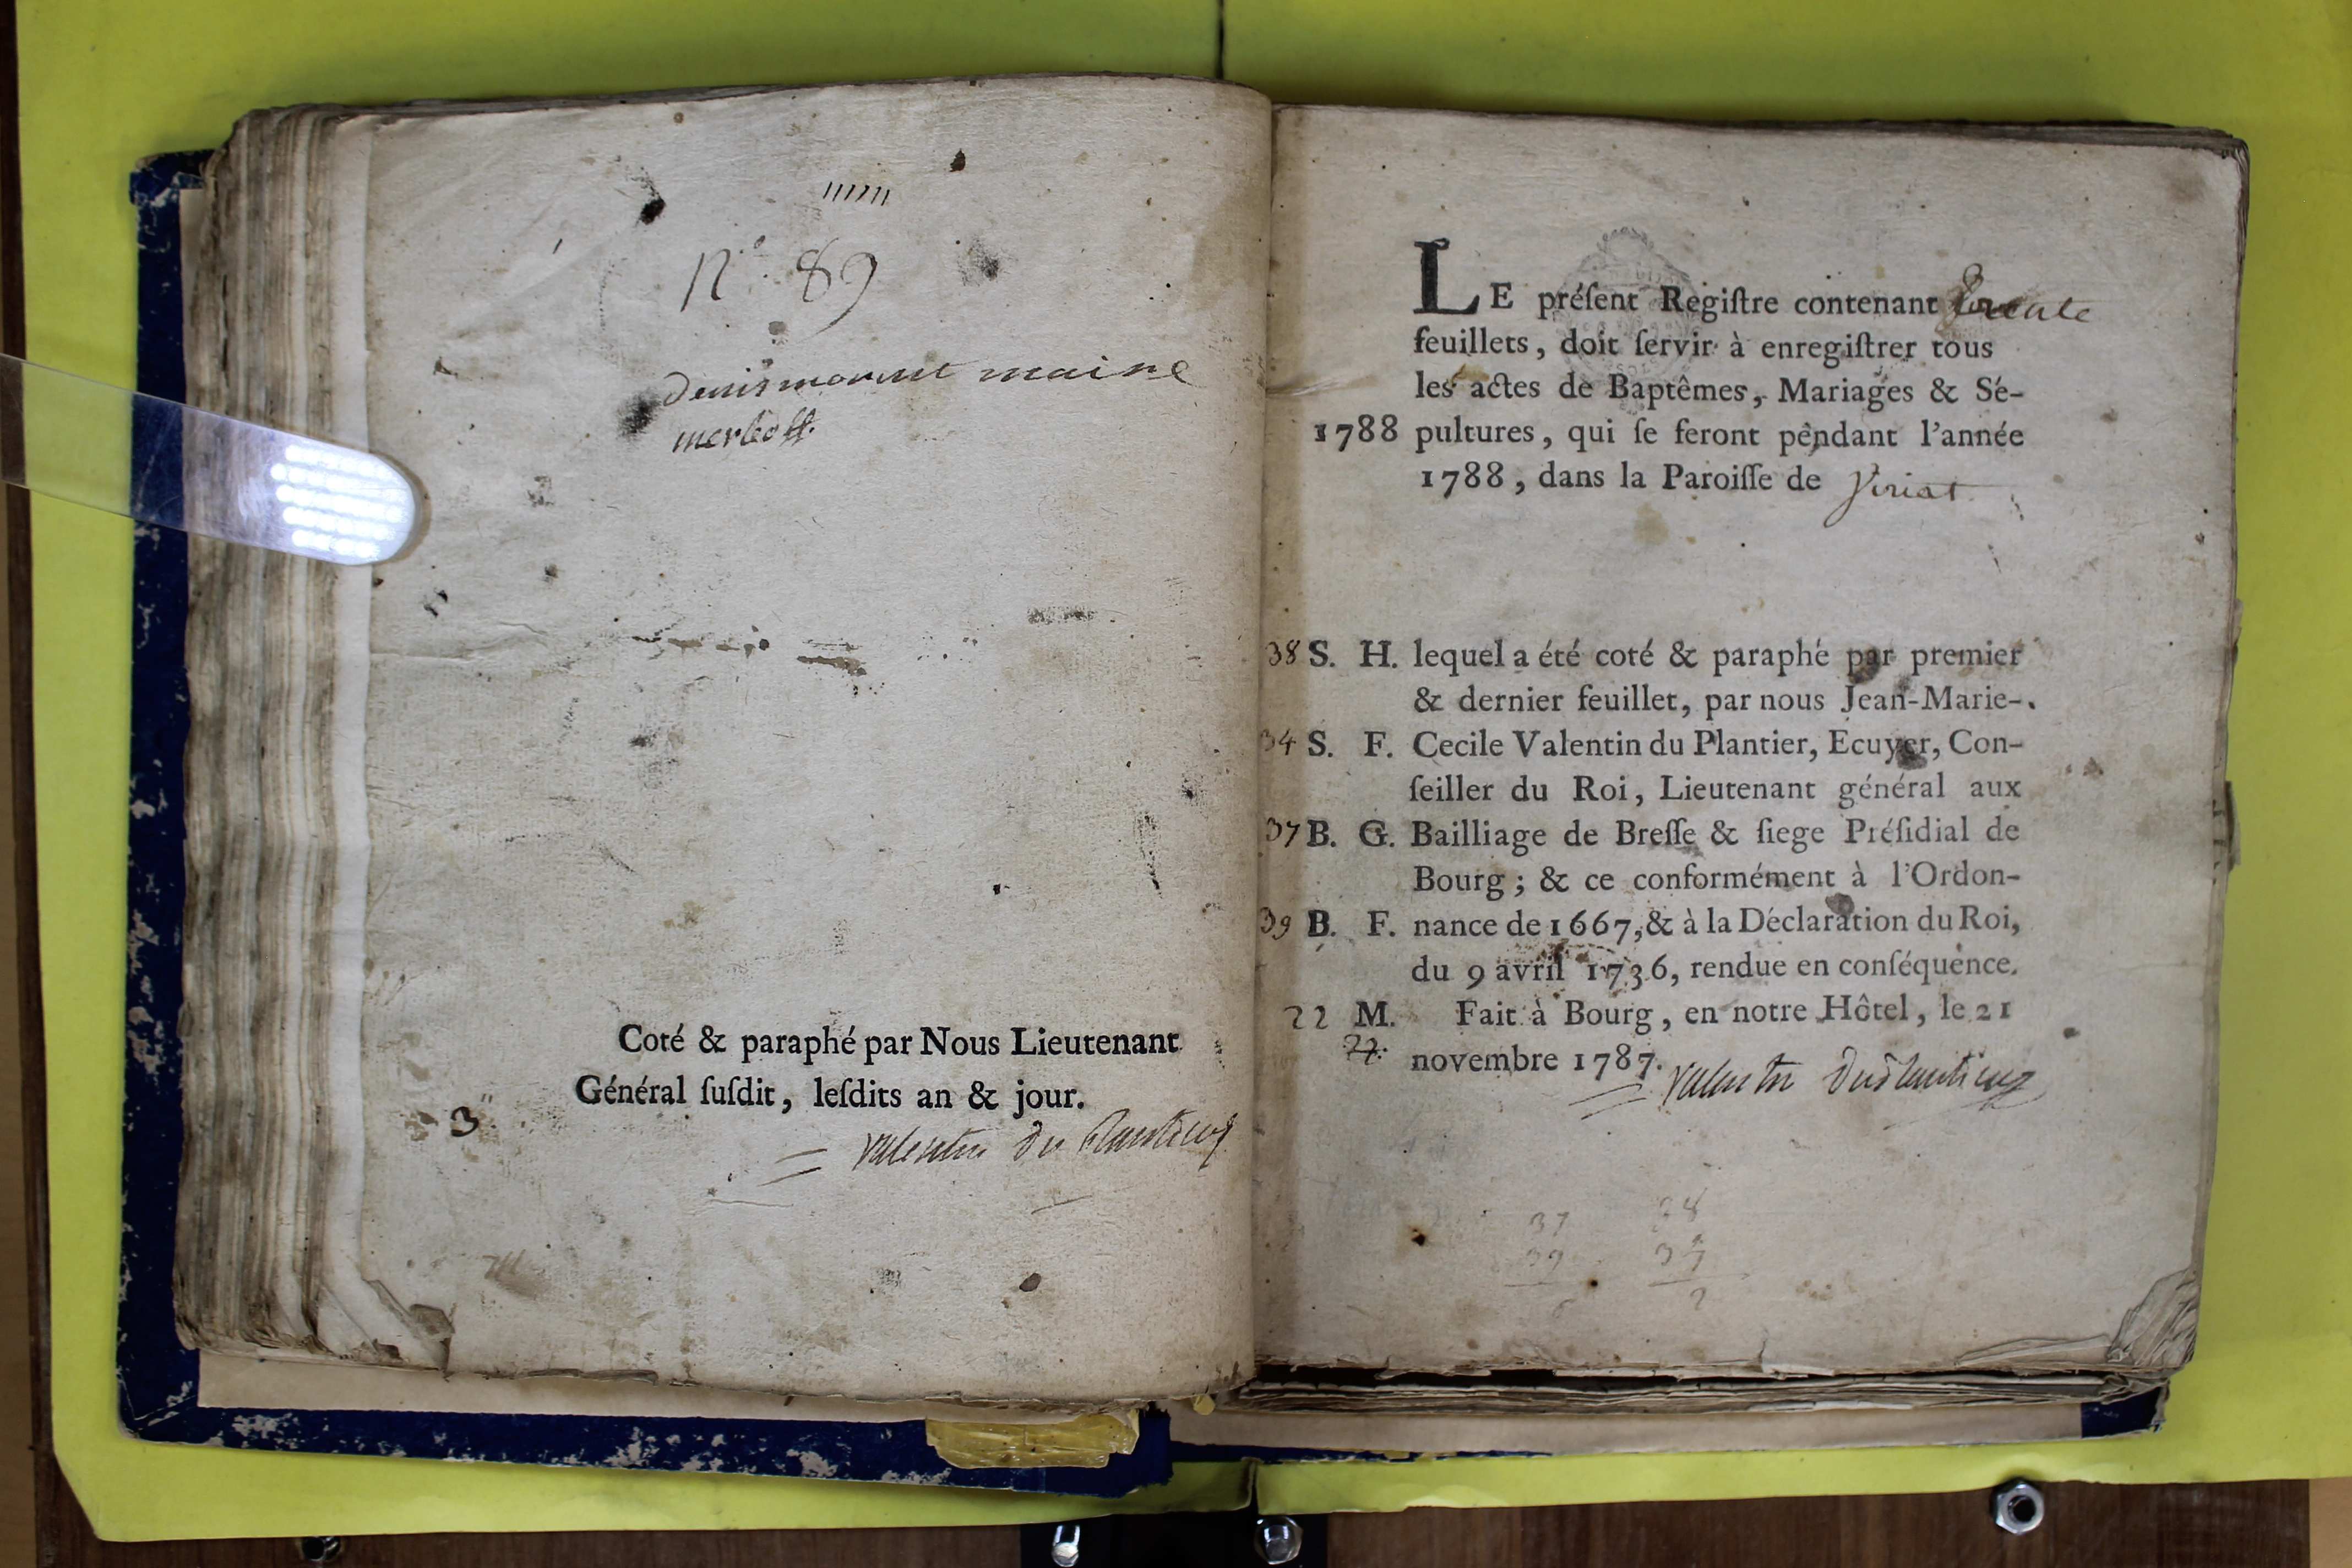 N.° 89
Coté & paraphé par Nous Lieutenant
Général ſuſdit, leſdits an & jour.
3
Valentin du Plantier
LE préſent Regiſtre contenant trente
feuillets, doit ſervir à enregiſtrer tous
les actes de Baptêmes, Mariages & Sé-
1788 pultures, qui ſe feront pendant l'année
1788, dans la Paroiſſe de Viriat
38 S. H. lequel a été coté & paraphé par premier
& dernier feuillet, par nous Jean-Marie-
34 S. F. Cecile Valentin du Plantier, Ecuyer, Con-
ſeiller du Roi, Lieutenant général aux
37 B. G. Bailliage de Breſſe & ſiege Préſidial de
Bourg; & ce conformément à l'Ordon-
39 B. F. nance de 1667, & à la Déclaration du Roi,
du 9 avril 1736, rendue en conſéquence.
22 M. Fait à Bourg, en notre Hôtel, le 21
novembre 1787. Valentin Duplantier
37
39